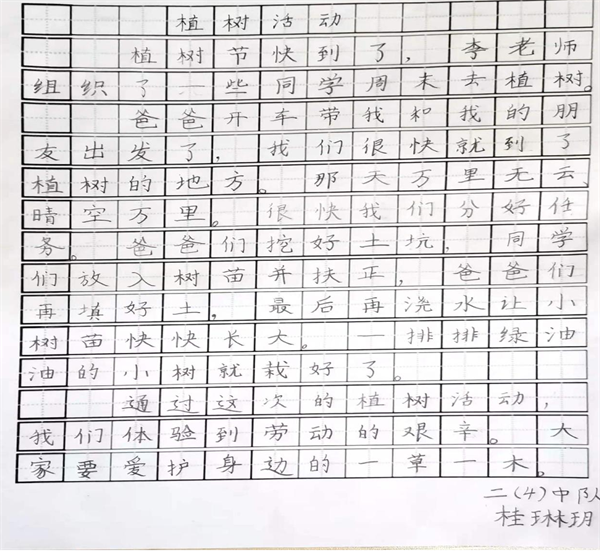 植树活动
植树节快到了，李老师
组织了一些同学周末去植树。
爸爸开车带我和我的朋
友出发了，我们很快就到了
植树的地方。那天万里无云、
晴空万里。很快我们分好任
务。爸爸们挖好土坑，同学
们放入树苗并扶正，爸爸们
再填好土，最后再浇水让小
树苗快快长大。一排排绿油
油的小树就栽好了。
通过这次的植树活动，
我们体验到劳动的艰辛。大
家要爱护身边的一草一木。
二(4)中队
桂琳玥